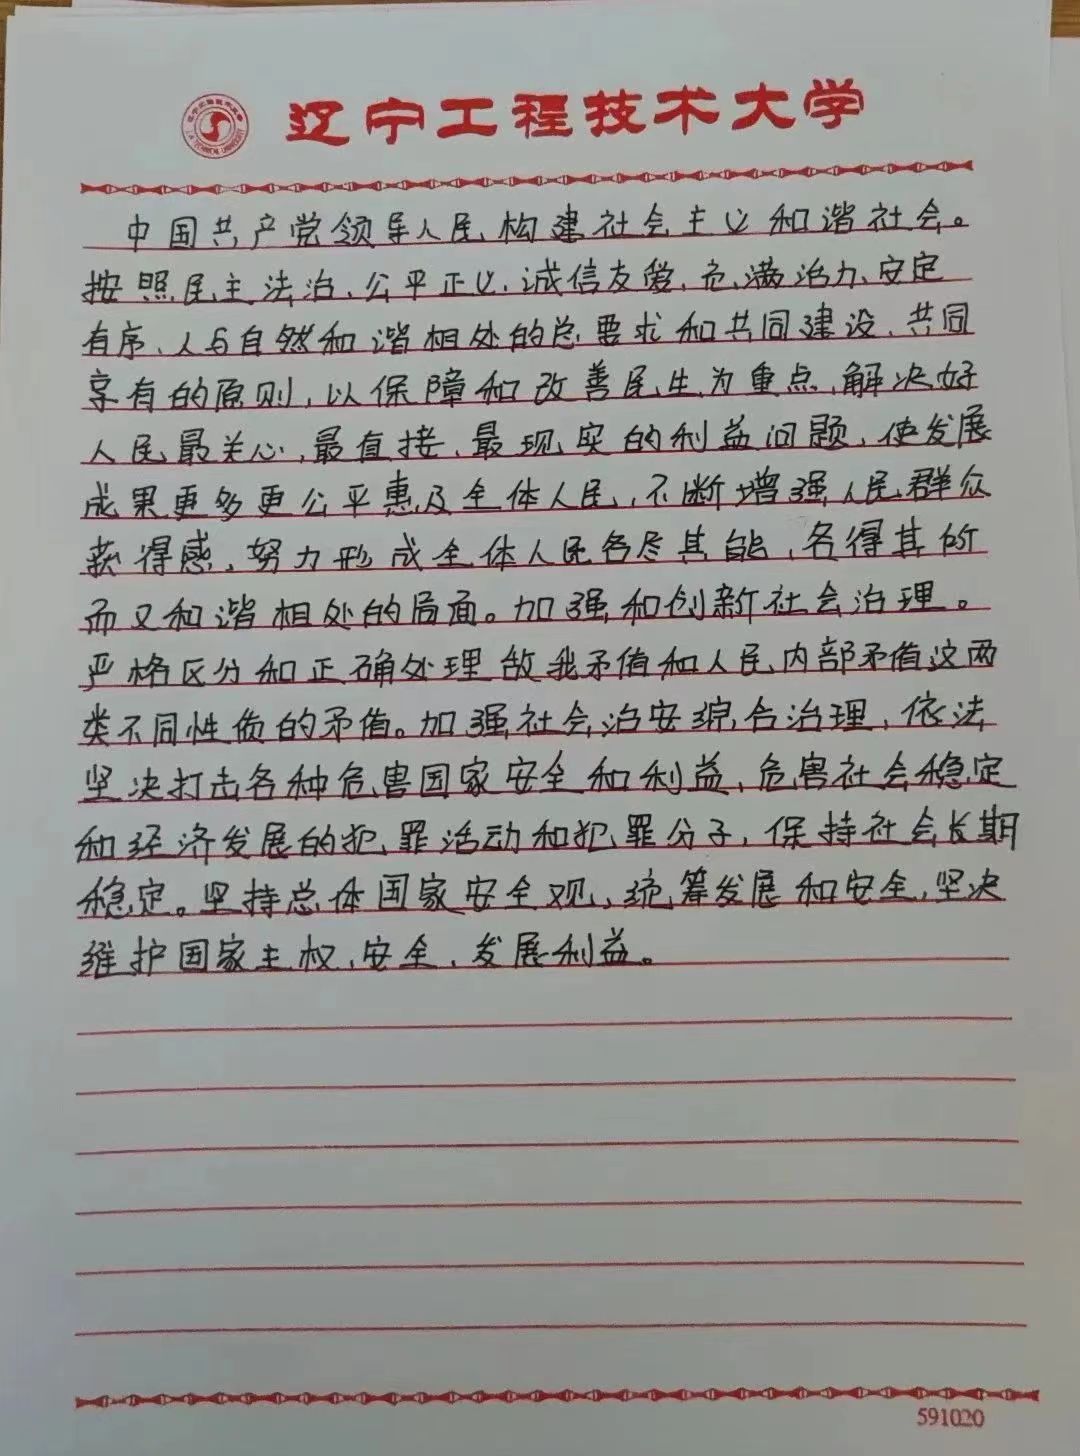 辽宁工程技术大学
中国共产党领导人民构建社会主义和谐社会。
按照民主法治、公平正义、诚信友爱、充满活力、安定
有序、人与自然和谐相处的总要求和共同建设、共同
享有的原则,以保障和改善民生为重点,解决好
人民最关心,最直接、最现实的利益问题,使发展
成果更多更公平惠及全体人民,不断增强人民群众
获得感,努力形成全体人民各尽其能、各得其所
而又和谐相处的局面。加强和创新社会治理。
严格区分和正确处理敌我矛盾和人民内部矛盾这两
类不同性质的矛盾。加强社会治安综合治理,依法
坚决打击各种危害国家安全和利益、危害社会稳定
和经济发展的犯罪活动和犯罪分子,保持社会长期
稳定。坚持总体国家安全观,统筹发展和安全,坚决
维护国家主权、安全、发展利益。
591020